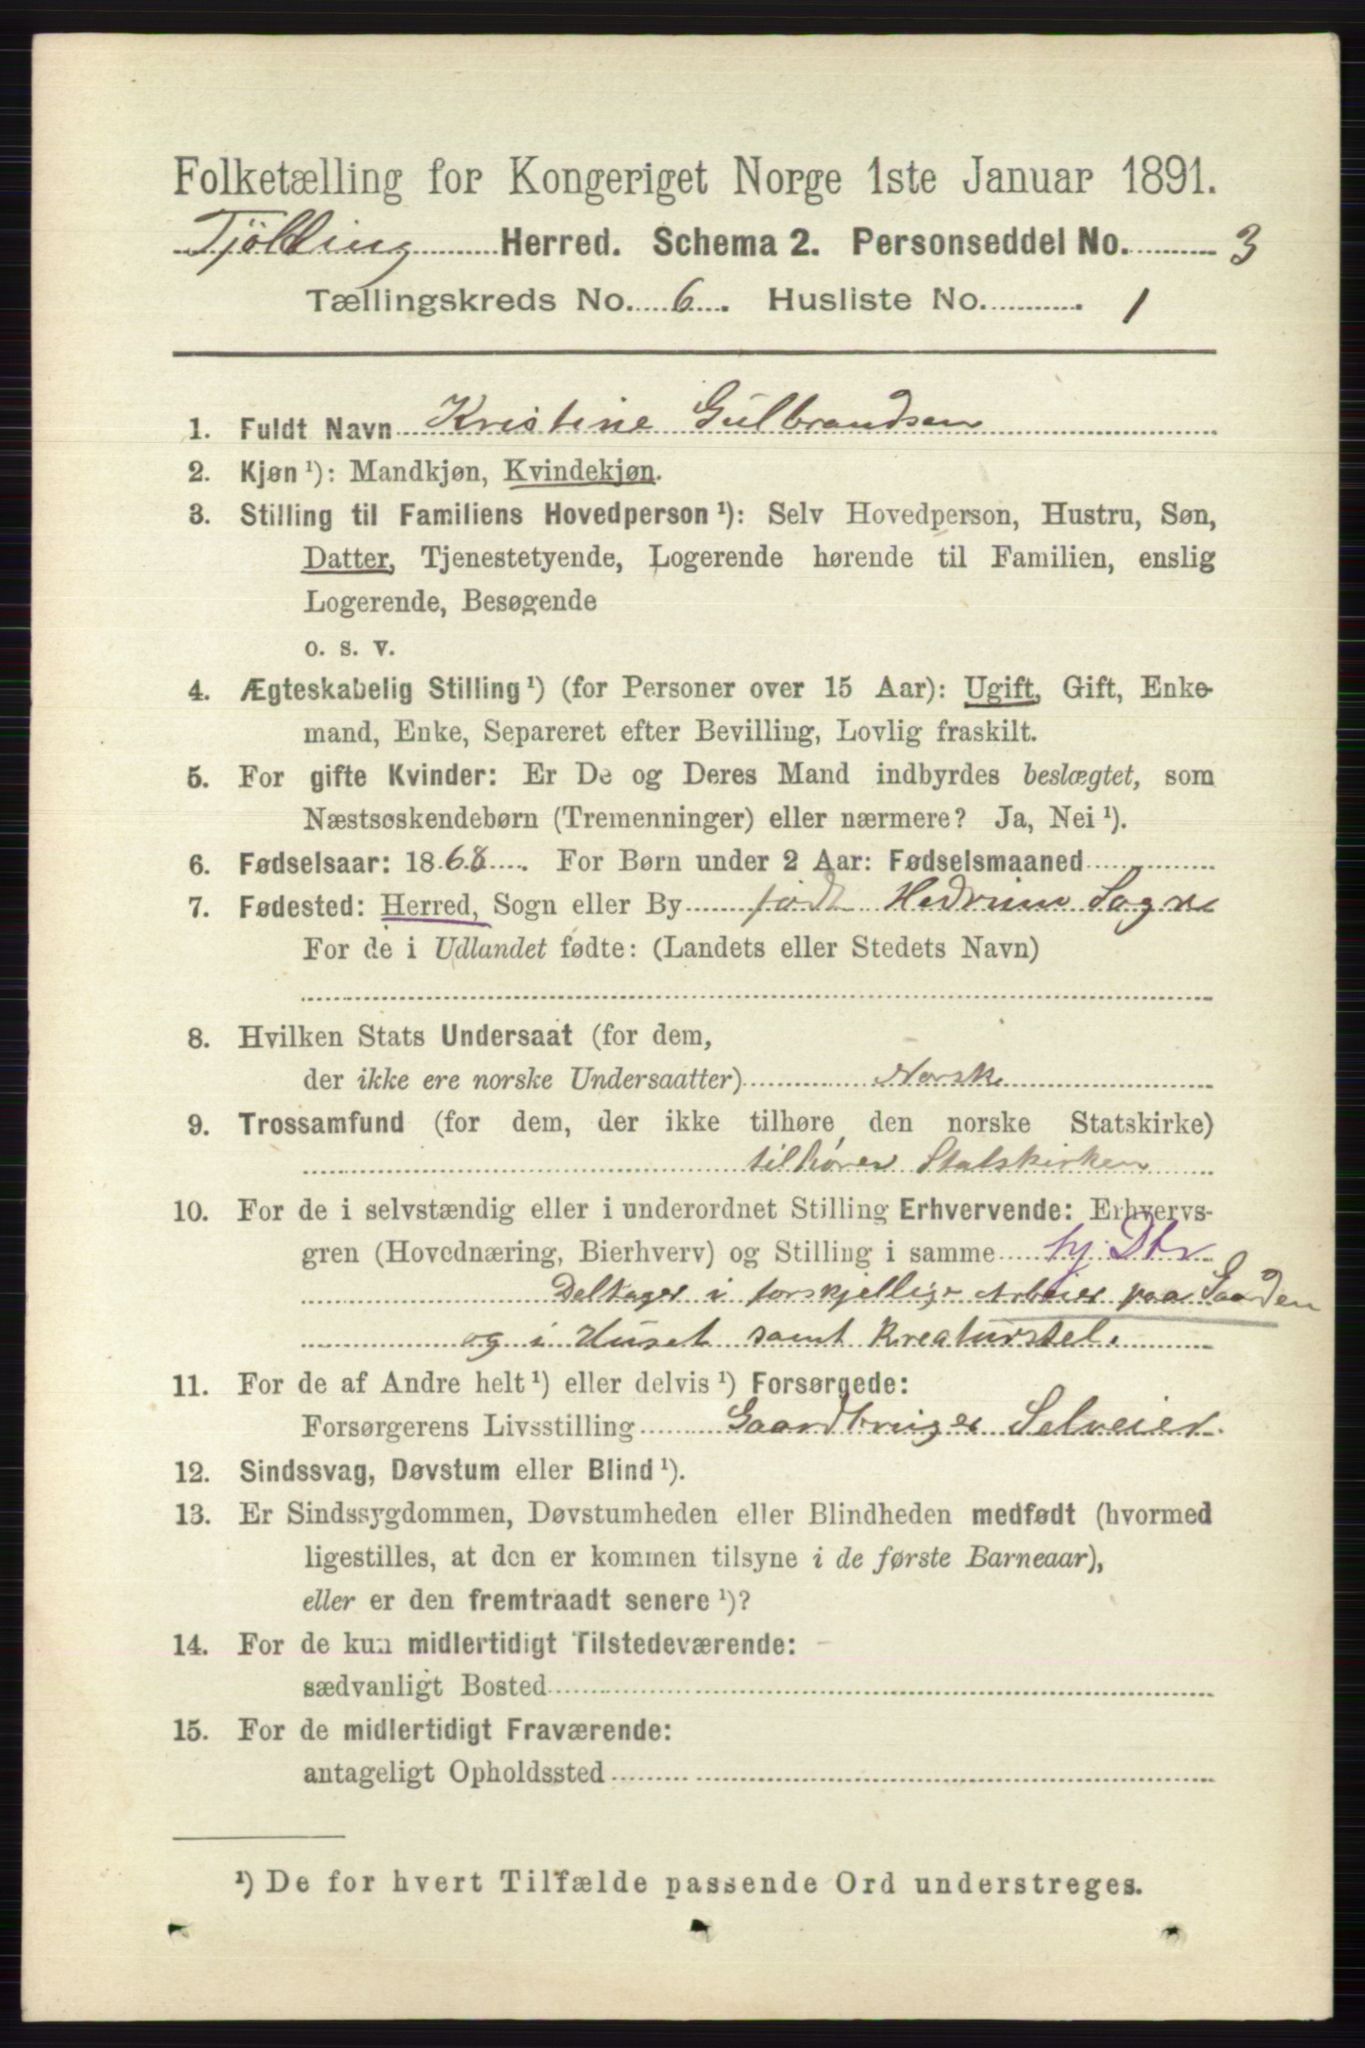 Folketælling for Kongeriget Norge 1ste Januar 1891.
Tjölling Herred. Schema 2. Personseddel No. 3
Tællingskreds No. 6. Husliste No. 1
1. Fuldt Navn Kristine Gulbrandsen
2. Kjøn ¹): Mandkjøn, Kvindekjøn.
3. Stilling til Familiens Hovedperson ¹): Selv Hovedperson, Hustru, Søn,
Datter, Tjenestetyende, Logerende hørende til Familien, enslig
Logerende, Besøgende
o. s. v.
4. Ægteskabelig Stilling ¹) (for Personer over 15 Aar): Ugift, Gift, Enke-
mand, Enke, Separeret efter Bevilling, Lovlig fraskilt.
5. For gifte Kvinder: Er De og Deres Mand indbyrdes beslægtet, som
Næstsøskendebørn (Tremenninger) eller nærmere? Ja, Nei ¹).
6. Fødselsaar: 1868. For Børn under 2 Aar: Fødselsmaaned
7. Fødested: Herred, Sogn eller By født Hedrum Sogn
For de i Udlandet fødte: (Landets eller Stedets Navn)
8. Hvilken Stats Undersaat (for dem,
der ikke ere norske Undersaatter) Norsk
9. Trossamfund (for dem, der ikke tilhøre den norske Statskirke)
tilhører Statskirken
10. For de i selvstændig eller i underordnet Stilling Erhvervende: Erhvervs-
gren (Hovednæring, Bierhverv) og Stilling i samme hj. Dtr
Deltager i forskjellige Arbeier paa Gaarden
og i Huset samt Kreaturstel.
11. For de af Andre helt ¹) eller delvis ¹) Forsørgede:
Forsørgerens Livsstilling Gaardbruger Selveier.
12. Sindssvag, Døvstum eller Blind ¹).
13. Er Sindssygdommen, Døvstumheden eller Blindheden medfødt (hvormed
ligestilles, at den er kommen tilsyne i de første Barneaar),
eller er den fremtraadt senere ¹)?
14. For de kun midlertidigt Tilstedeværende:
sædvanligt Bosted
15. For de midlertidigt Fraværende:
antageligt Opholdssted
¹) De for hvert Tilfælde passende Ord understreges.